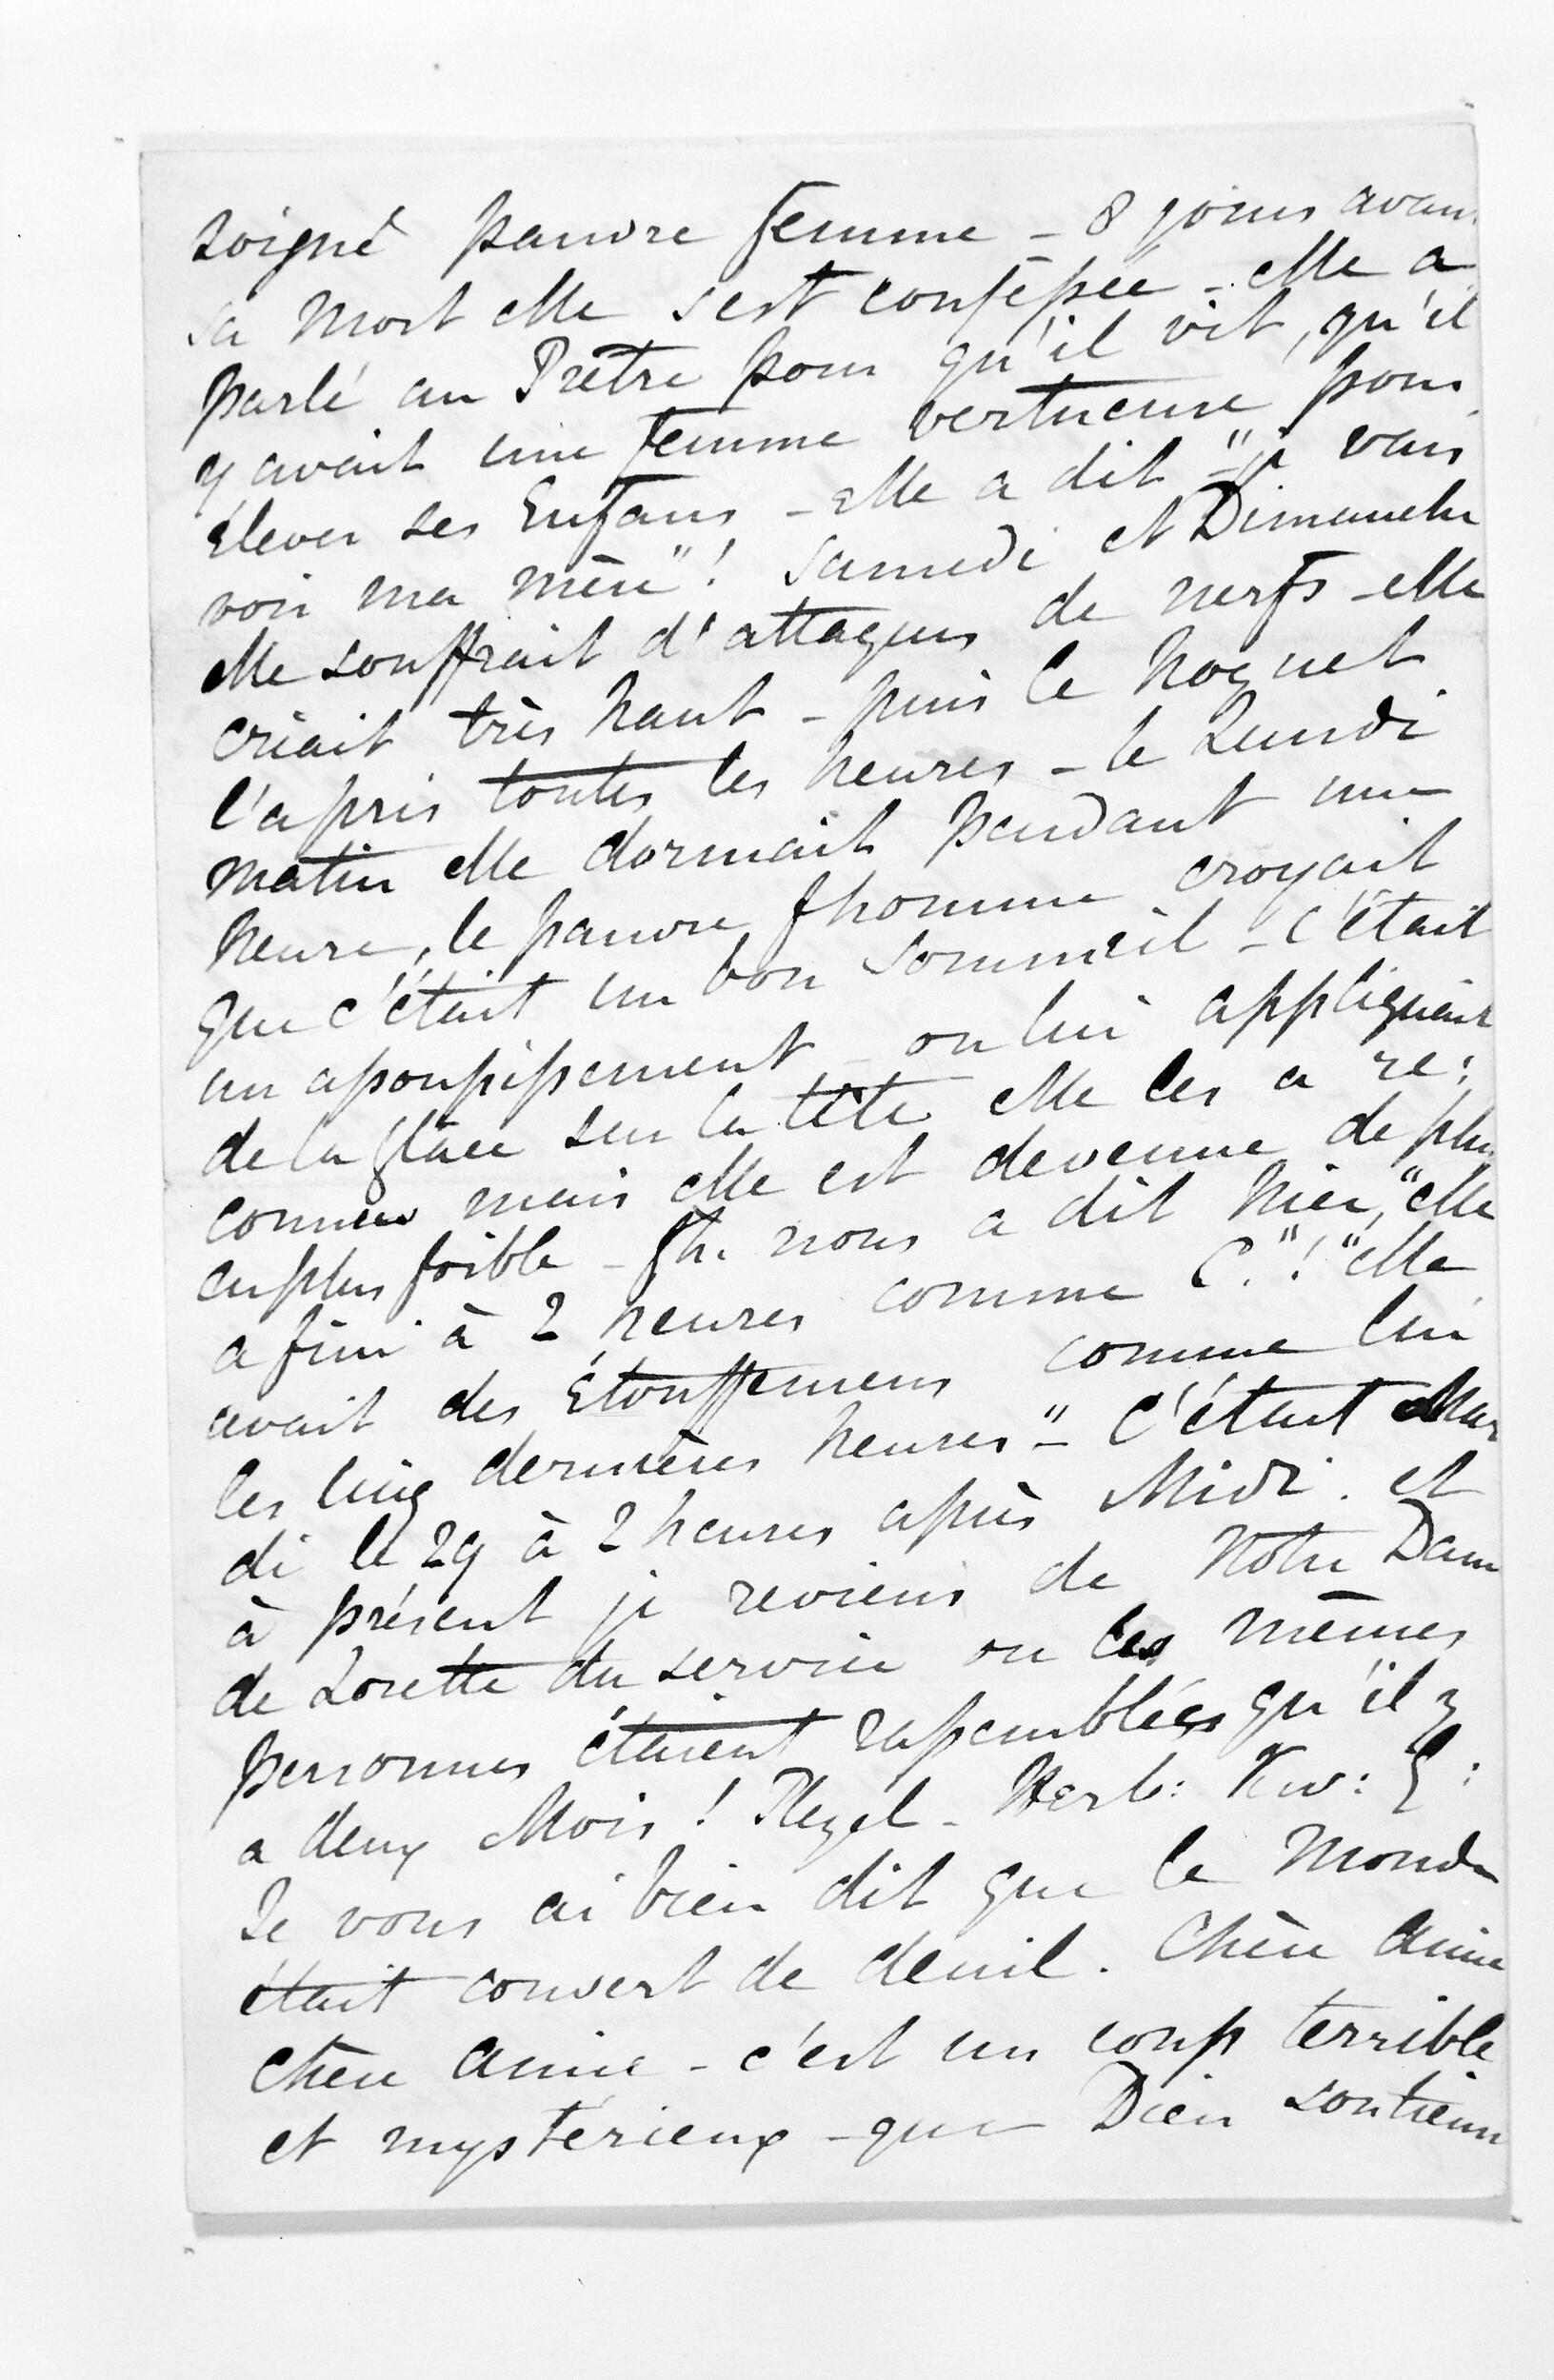 soigné pauvre femme – 8 jours avan
sa mort elle s'est confessée – elle a
parlé au Prètre pour qu'il vit, qu'il
y avait une femme vertueuse pour
élever ses Enfans – elle a dit – "je vais
voir ma mère"! Samedi et Dimanche
elle souffrait d'attaques de nerfs – elle
criait très haut – puis le hoquet
l'a pris toutes les heures – le Lundi
matin elle dormait pendant une
heure, le pauvre Fhomme croyait
que c'était un bon sommeil – c'était
un assoupissement – on lui appliquait
de la glace sur la tête elle les a re:
connus mais elle est devenue de plu
en plus foible – Fh. nous a dit hier, "elle
a fini à 2 heures comme C."! "elle
avait des Étouffemens comme lui
les cinq dernières heures" – C'était Mar
di le 29 à 2 heures après Midi. et
à présent je reviens de Notre Dam
de Lorette du service ou les mêmes
personnes étaient rassemblées qu'il y
a deux Mois! Pleyel – Herb: Kw:
Je vous ai bien dit que le monde
était couvert de deuil. Chère Amie
chère Amie – c'est un coup terrible
et mystérieux – que Dieu soutienn